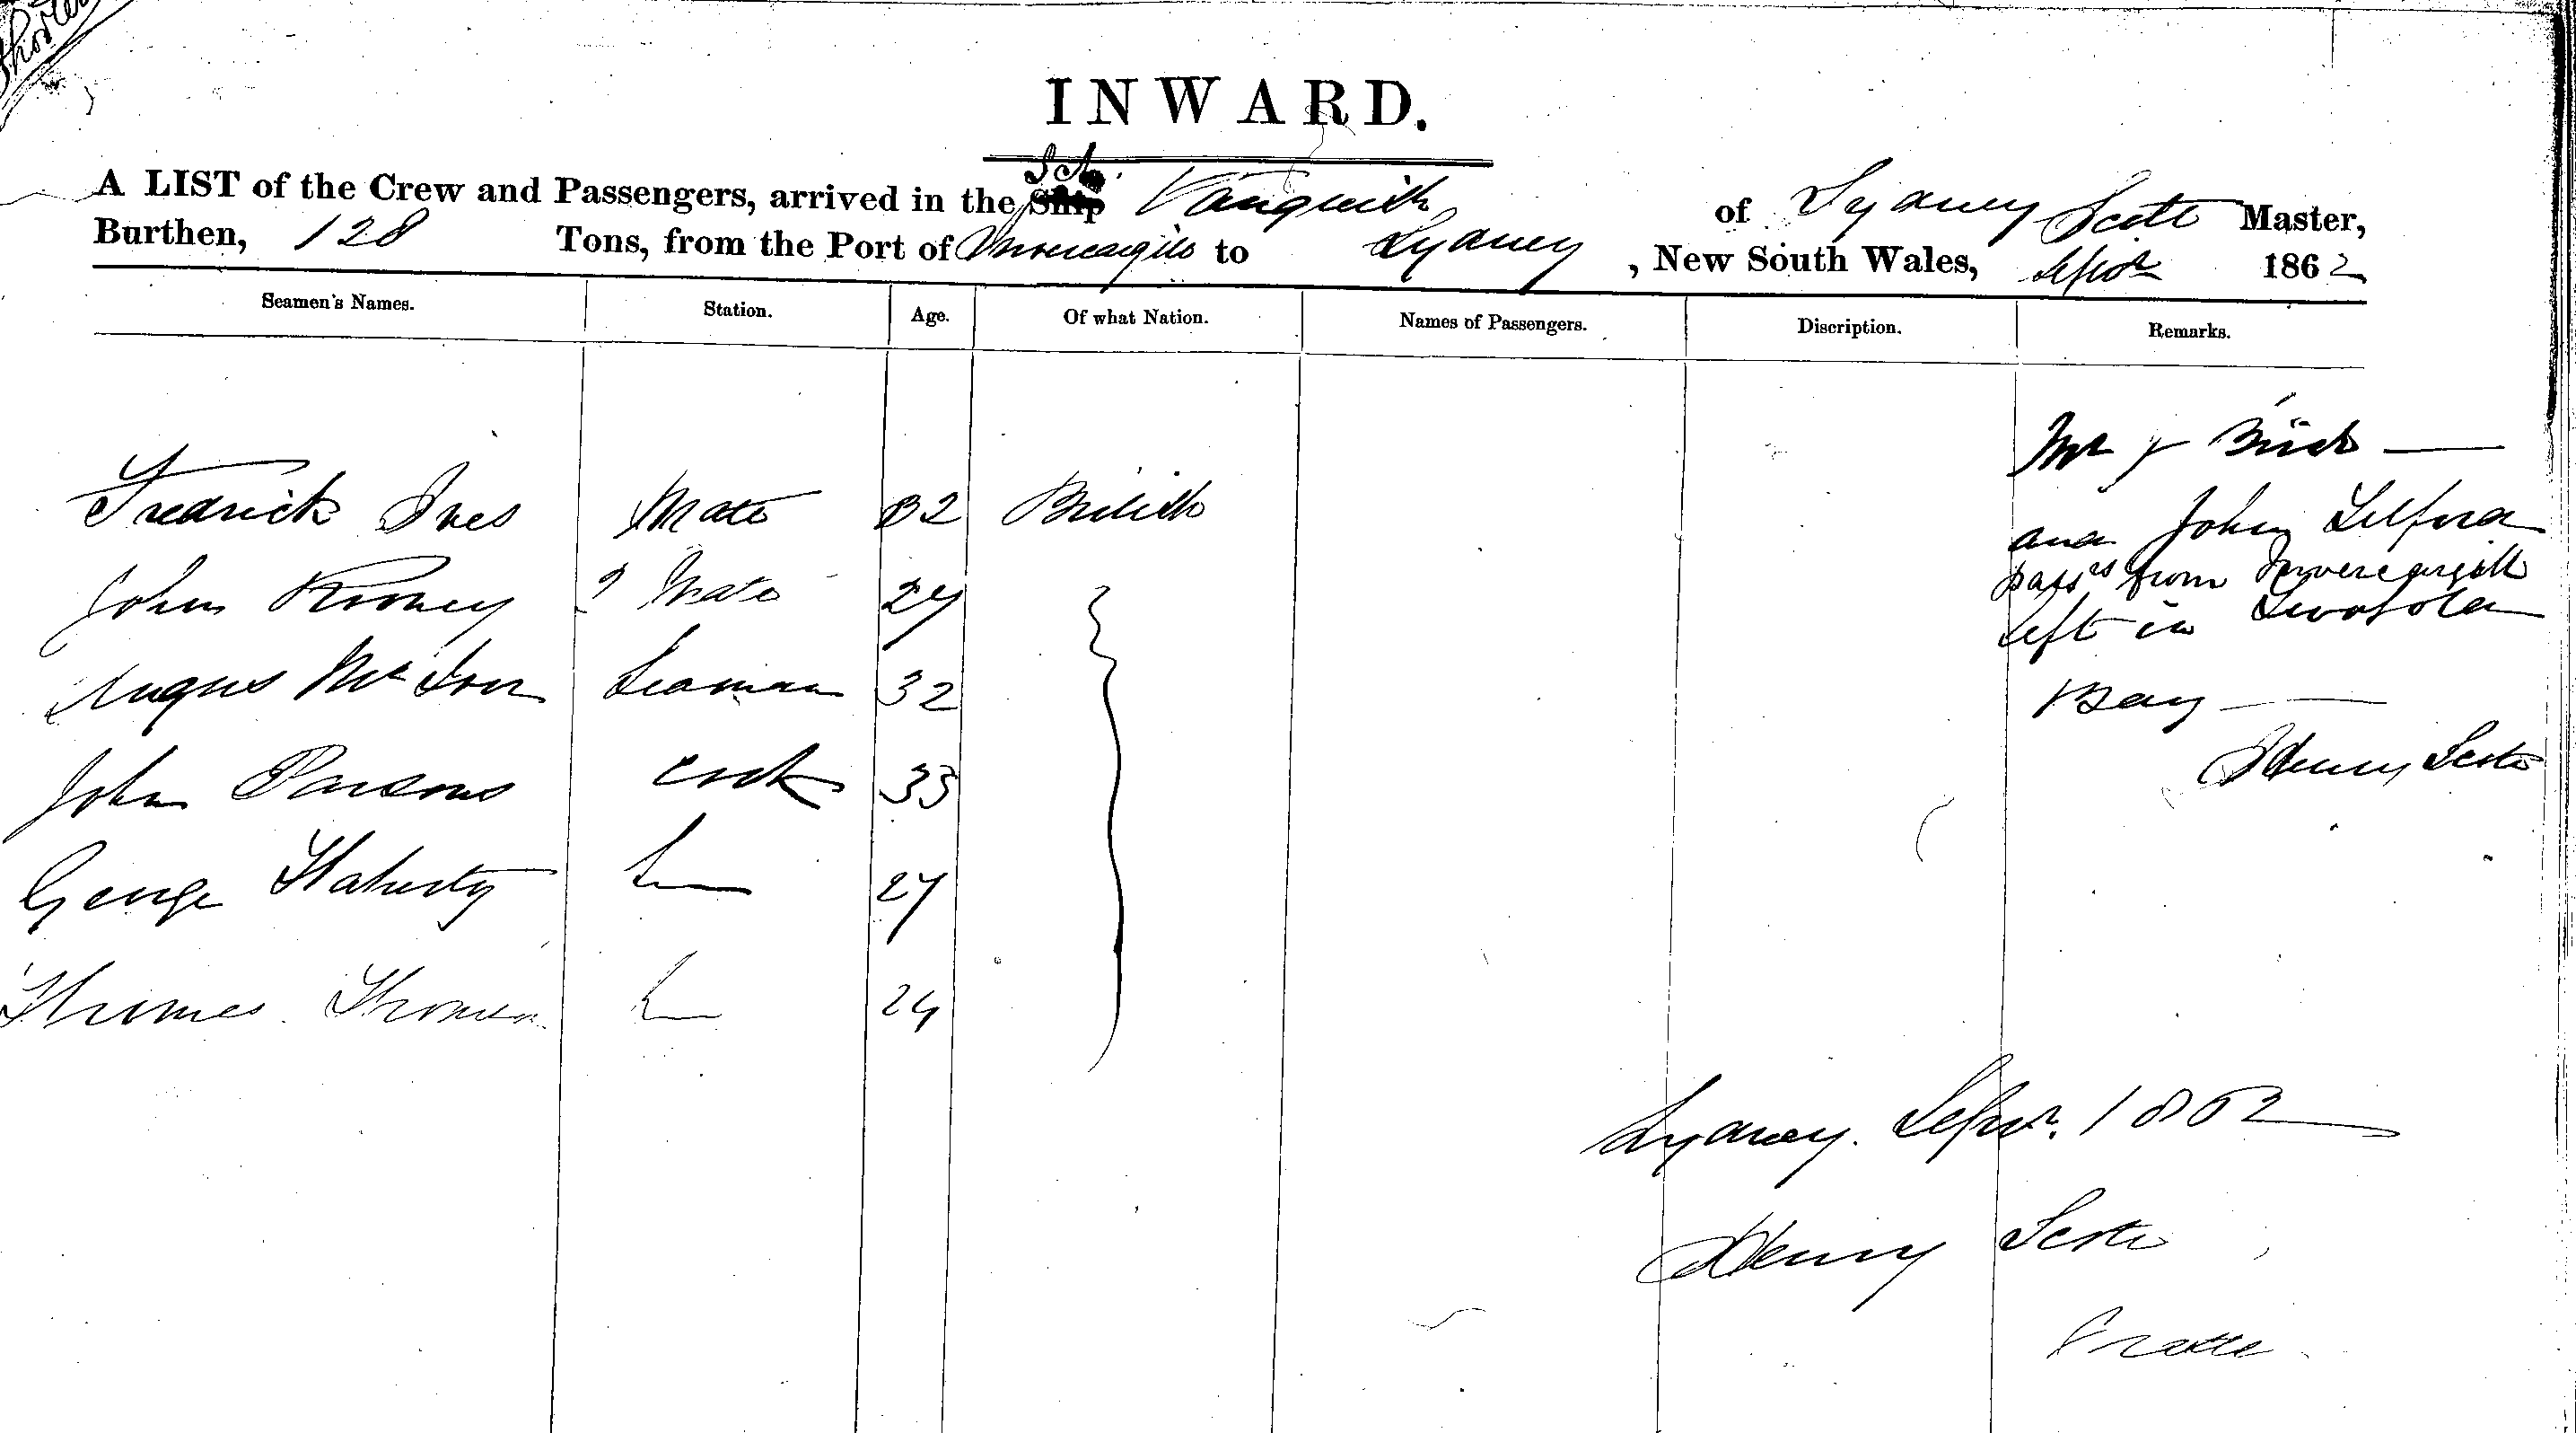 INWARD.
A LIST of the Crew and Passengers, arrived in the Ship Sch. Vanquish of Sydney Scott Master,
Burthen, 128 Tons, from the Port of Invercargill to Sydney, New South Wales, Septr 1862
Seamen's Names. Station. Age. Of what Nation. Names of Passengers. Discription. Remarks.
Mr J Bird —
Fredrick Ives Mate 32 British
and John
John Rooney 2 Mate 27
passrs from Invercargill
left in Twofold
Angus Mc Seaman 32
Bay —
John Parsons Cook 33
Henry Scott
George Flaherty 27
Thomas Thomson 24
Sydney. Septr. 1862
Henry Scott